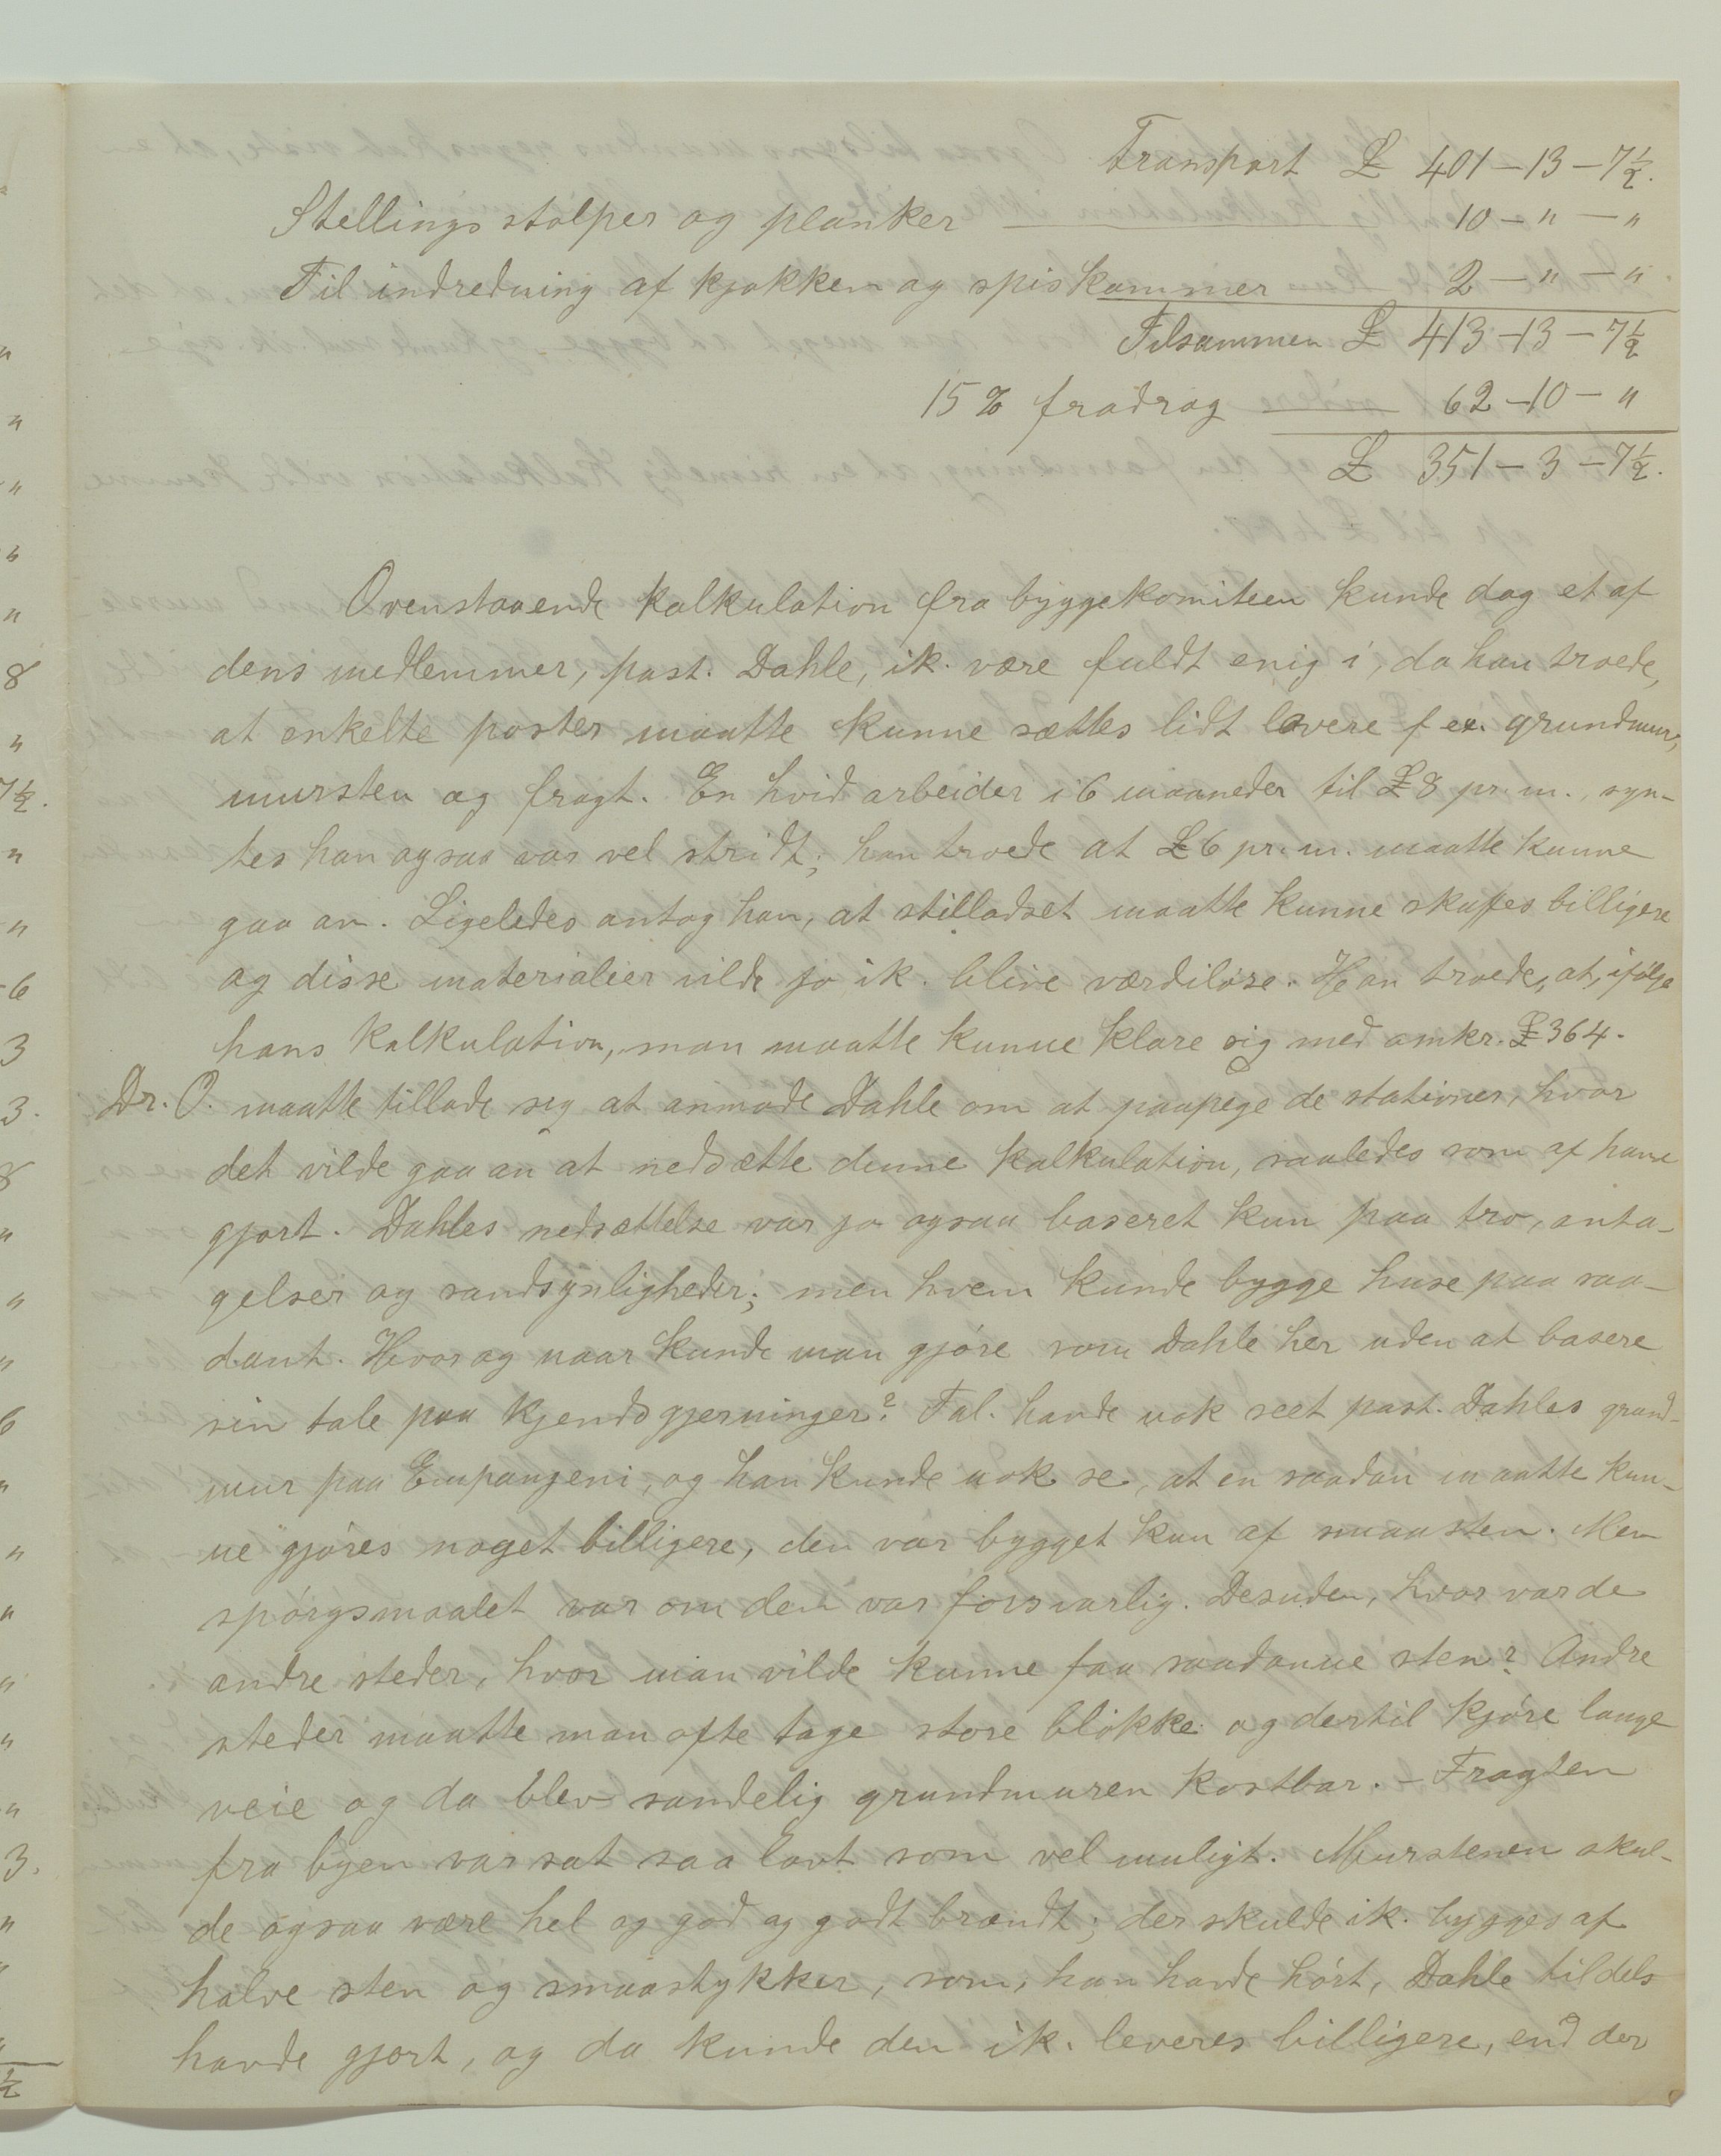 Transport £ 401-13-7½.
Stellingsstolper og planker 10-"-"
Til indredning af kjøkken og spiskammer 2-"-"
Tilsammen £ 413-13-7½
15% fradrag 62-10-"
£ 351-3-7½.
Ovenstaaende kalkulation fra byggekomiteen kunde dog et af
dens medlemmer, past. Dahle, ik. være fuldt enig i, da han troede,
at enkelte poster maatte kunne sættes lidt lavere f ex. grundmur,
mursten og fragt. En hvid arbeider i 6 maaneder til £8 pr. m., syn-
tes han ogsaa var vel stridt; han troede at £6 pr. m. maatte kunne
gaa an. Ligeledes antog han, at stilladset maatte kunne skaffes billigere
og disse materialier vilde jo ik. blive værdiløse. Han troede, at, ifølge
hans kalkulation, man maatte kunne klare sig med omkr. £364.
Dr. O. maatte tillade sig at anmode Dahle om at paapege de stationer, hvor
det vilde gaa an at nedsætte denne kalkulation, saaledes som af ham
gjort. Dahles nedsættelse var jo ogsaa baseret kun paa tro, anta-
gelser og sandsynligheder; men hvem kunde bygge huse paa saa-
dant. Hvor og naar kunde man gjøre som Dahle her uden at basere
sin tale paa kjendsgjerninger? Tal. havde nok seet past. Dahles grund-
mur paa Empangeni, og han kunde nok se, at en saadan maatte kun-
ne gjøres noget billigere, den var bygget kun af smaasten. Men
spørgsmaalet var om den var forsvarlig. Desuden, hvor var de
andre steder, hvor man vilde kunne faa saadanne sten? Andre
steder maatte man ofte tage store blokke og dertil kjøre lange
veie og da blev sandelig grundmuren kostbar. - Fragten
fra byen var sat saa lavt som vel muligt. Murstenen skul-
de ogsaa være hel og god og godt brændt; der skulde ik. bygges af
halve sten og smaastykker, som, han havde hørt, Dahle tildels
havde gjort, og da kunde den ik. leveres billigere, end der